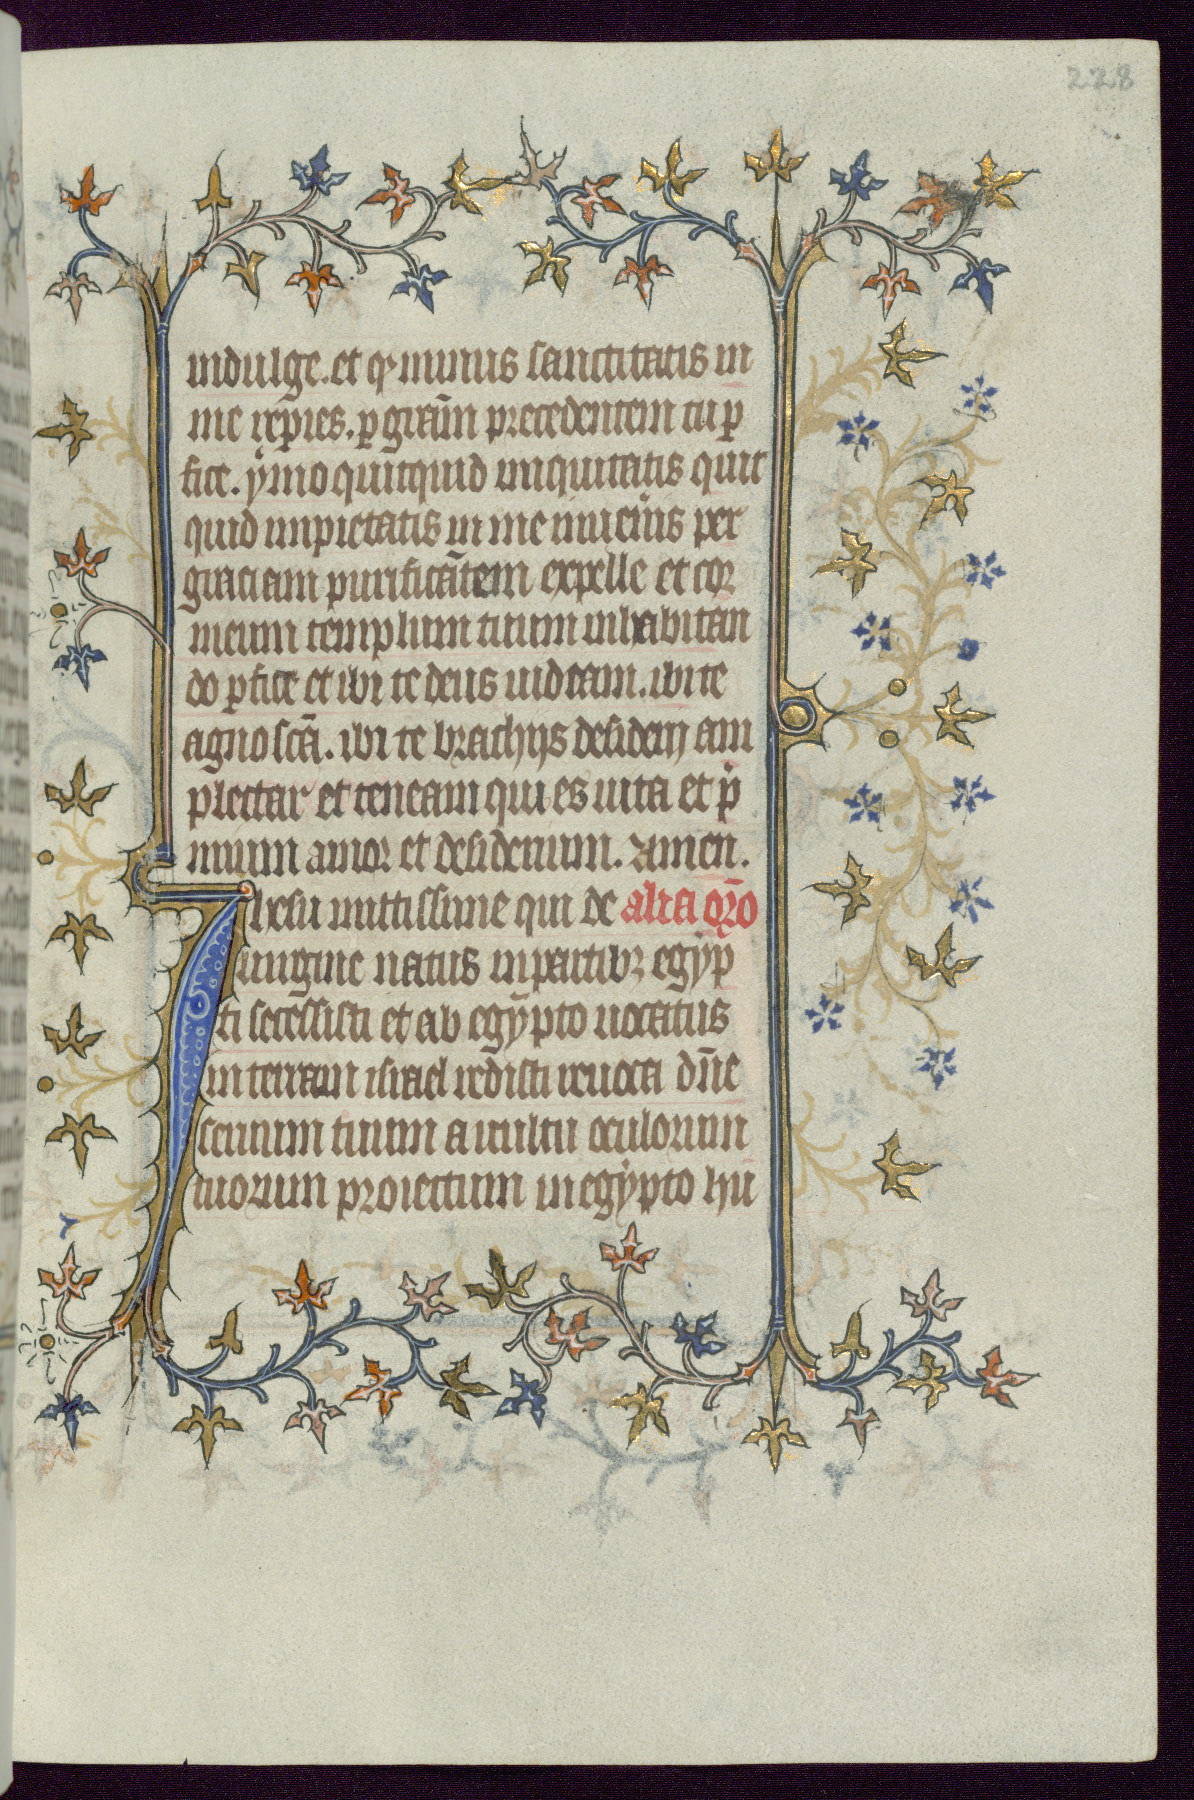 228
indulge. et qͥ minus sanctitatis in
me repies. p grām precedentem tu p
fice. ymo quitquid iniquitatis quit
quid impietatis in me inuenis per
graciam purificātem expelle et cor
meum templum tuum inhabitan
do pfice et ibi te deus uideam. ibi te
agnoscā. ibi te brachijs desiderij am
plectar et teneam qui es uita et p̄
mium amor et desiderium. Amen.
Ihesu mittissime qui de alia or̄o
uirgine natus in partibꝫ egyp
ti secessisti et ab egypto uocatus
in terram israel redisti reuoca dn̄e
seruum tuum a uultu oculorum
tuorum proiectum in egypto hu